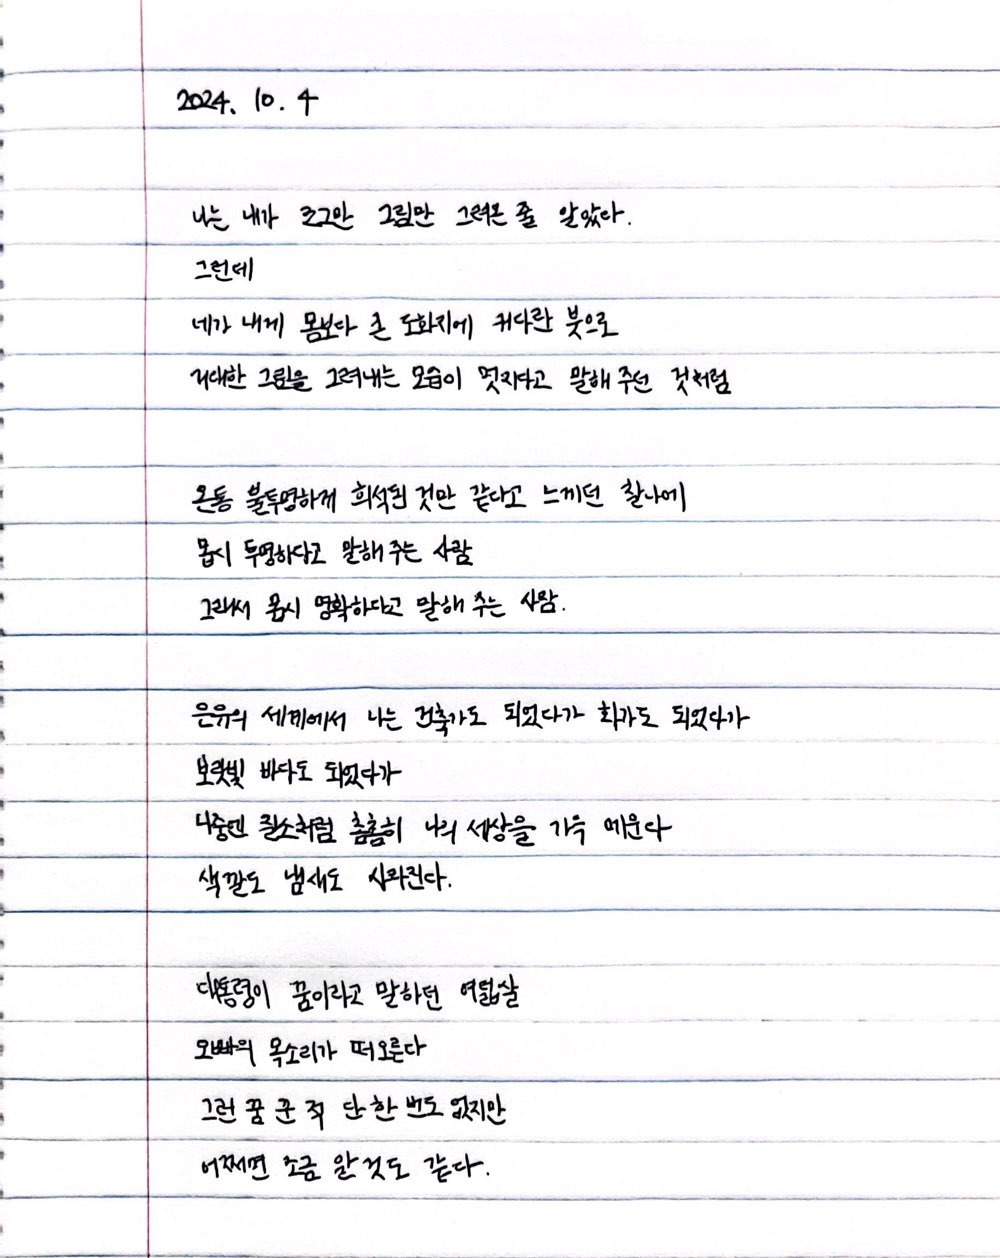 2024. 10. 4
나는 내가 조그만 그림만 그려온 줄 알았다.
그런데
네가 내게 몸보다 큰 도화지에 커다란 붓으로
거대한 그림을 그려내는 모습이 멋지다고 말해 주던 것처럼
온통 불투명하게 희석된 것만 같다고 느끼던 찰나에
몹시 투명하다고 말해 주는 사람
그래서 몹시 명확하다고 말해 주는 사람.
은유의 세계에서 나는 건축가도 되었다가 화가도 되었다가
보랏빛 바다도 되었다가
나중엔 질소처럼 촘촘히 나의 세상을 가득 메운다
색깔도 냄새도 사라진다.
대통령이 꿈이라고 말하던 여덟살
오빠의 목소리가 떠오른다
그런 꿈 꾼 적 단 한 번도 없지만
어쩌면 조금 알 것도 같다.